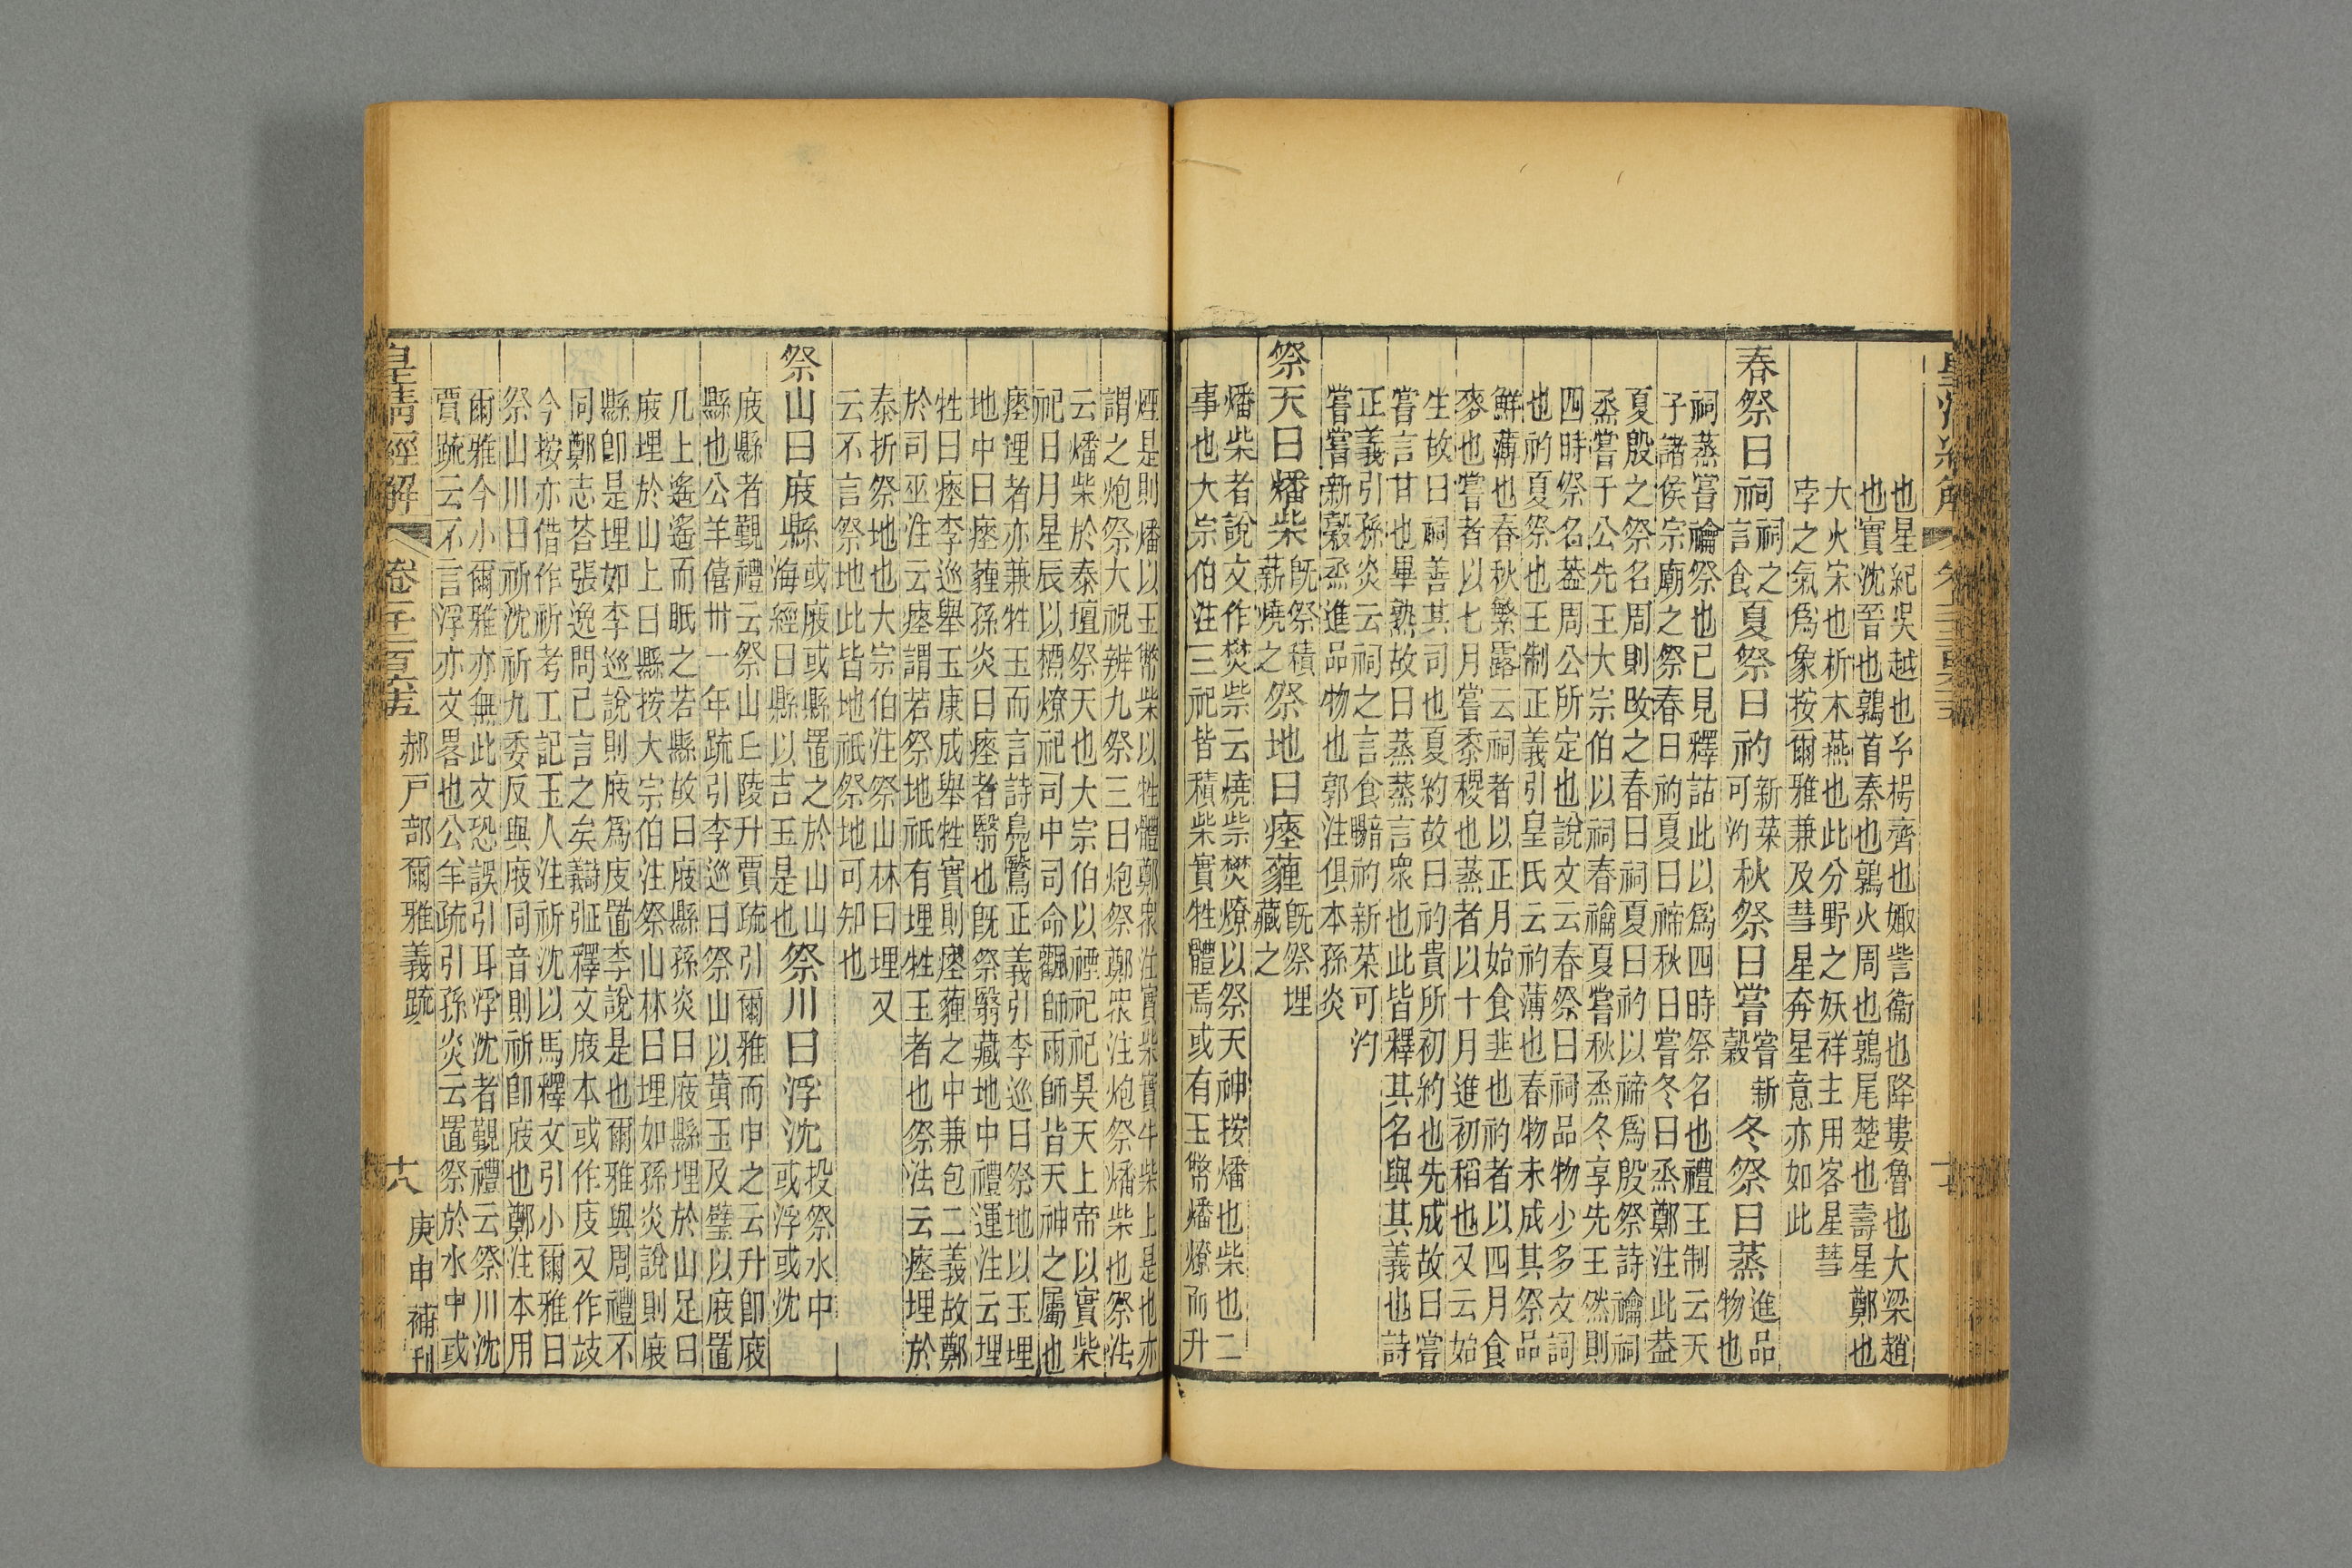 也星紀吳越也𤣥枵齊也娵訾衞也降婁魯也大梁趙
也實沈晉也鶉首秦也鶉火周也鶉尾楚也壽星鄭也
大火宋也析木燕也此分野之妖祥主用客星彗
孛之氣爲象按爾雅兼及彗星奔星意亦如此
春祭曰祠祠之言食夏祭曰礿新菜可汋秋祭曰嘗嘗新穀冬祭曰蒸進品物也
祠蒸嘗禴祭也已見釋詁此以爲四時祭名也禮王制云天
子諸侯宗廟之祭春曰礿夏曰禘秋曰嘗冬曰烝鄭注此蓋
夏殷之祭名周則改之春曰祠夏曰礿以禘爲殷祭詩禴祠
烝嘗于公先王大宗伯以祠春禴夏嘗秋烝冬享先王然則
四時祭名葢周公所定也說文云春祭曰祠品物少多文詞
也礿夏祭也王制正義引皇氏云礿薄也春物未成其祭品
鮮薄也春秋繁露云祠者以正月始食韭也礿者以四月食
麥也嘗者以七月嘗黍稷也蒸者以十月進初稻也又云始
生故曰祠善其司也夏約故曰礿貴所初約也先成故曰嘗
嘗言甘也畢熟故曰蒸蒸言衆也此皆釋其名與其義也詩
正義引孫炎云祠之言食礿新菜可汋
嘗嘗新穀烝進品物也郭注俱本孫炎
祭天曰燔柴既祭積薪燒之祭地曰瘞薶既祭埋藏之
燔柴者說文作樊祡云燒祡樊燎以祭天神按燔也柴也二
事也大宗伯注三祀皆積柴實牲體焉或有玉幣燔燎而升
煙是則燔以玉幣柴以牲體鄭衆注實柴實牛柴上是也亦
謂之炮祭大祝辨九祭三曰炮祭鄭眾注炮祭燔柴也祭法
云燔柴於泰壇祭天也大宗伯以禋祀祀昊天上帝以實柴
祀日月星辰以槱燎祀司中司命飌師雨師皆天神之屬也
瘞埋者亦兼牲玉而言詩鳧鷖正義引李巡曰祭地以玉埋
地中曰瘞薶孫炎曰瘞者翳也既祭翳藏地中禮運注云埋
牲曰瘞李巡舉玉康成舉牲實則瘞薶之中兼包二義故鄭
於司巫注云瘞謂若祭地祇有埋牲玉者也祭法云瘞埋於
泰折祭地也大宗伯注祭山林曰埋又
云不言祭地此皆地祇祭地可知也
祭山曰庪縣或庪或縣置之於山山海經曰縣以吉玉是也祭川曰浮沈投祭水中或浮或沈
庪縣者覲禮云祭山丘陵升賈疏引爾雅而申之云升卽庪
縣也公羊僖卅一年疏引李巡曰祭山以黃玉及璧以庪置
几上遙遙而眂之若縣故曰庪縣孫炎曰庪縣埋於山足曰
庪埋於山上曰縣按大宗伯注祭山林曰埋如孫炎說則庪
縣卽是埋如李巡說則庪爲庋置李說是也爾雅與周禮不
同鄭志荅張逸問已言之矣義疏證釋文庪本或作庋又作歧
今按亦借作祈考工記玉人注祈沈以馬釋文引小爾雅曰
祭山川曰祈沈祈九委反與庪同音則祈卽庪也鄭注本用
爾雅今小爾雅亦無此文恐誤引耳浮沈者覲禮云祭川沈
賈疏云不言浮亦文畧也公羊疏引孫炎云置祭於水中或
皇清經解 卷二百六十五 郝戸部爾雅義疏 十八 庚申補刊